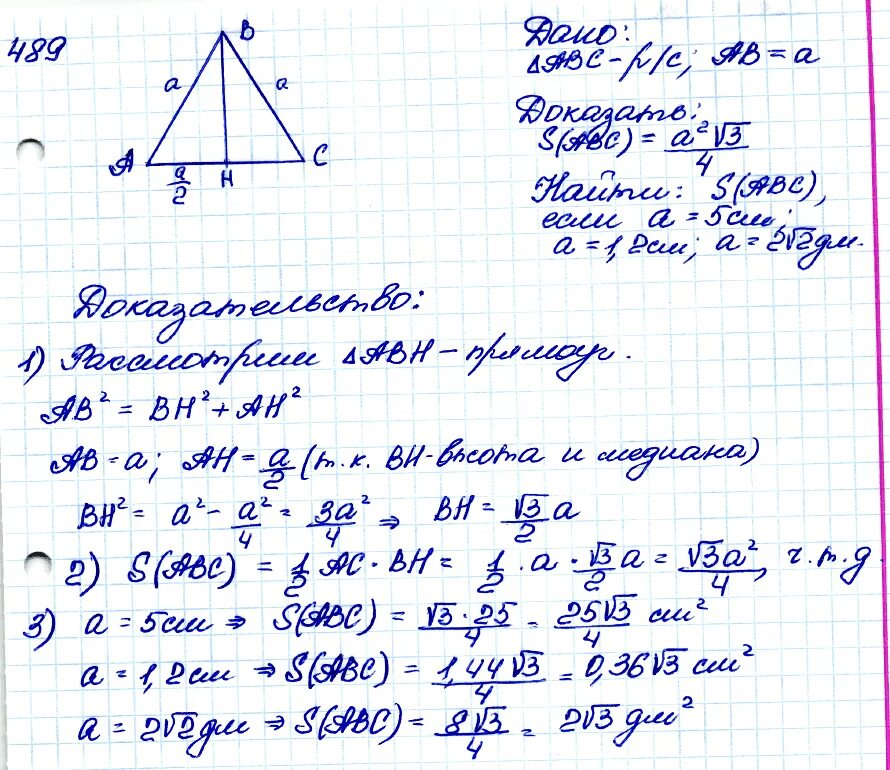 489
B
a
a
A
a/2
H
C
Дано:
△ABC - р/с; AB = a
Доказать:
S(ABC) = a²√3/4
Найти: S(ABC),
если a = 5см;
a = 1,2см; a = 2√2дм.
Доказательство:
1) Рассмотрим △ABH - прямоуг.
AB² = BH² + AH²
AB = a; AH = a/2 (т.к. BH - высота и медиана)
BH² = a² - a²/4 = 3a²/4 ⇒ BH = √3/2 a
2) S(ABC) = 1/2 AC · BH = 1/2 · a · √3/2 a = √3a²/4, ч.т.д.
3) a = 5см ⇒ S(ABC) = √3·25/4 = 25√3/4 см²
a = 1,2см ⇒ S(ABC) = 1,44√3/4 = 0,36√3 см²
a = 2√2дм ⇒ S(ABC) = 8√3/4 = 2√3 дм²